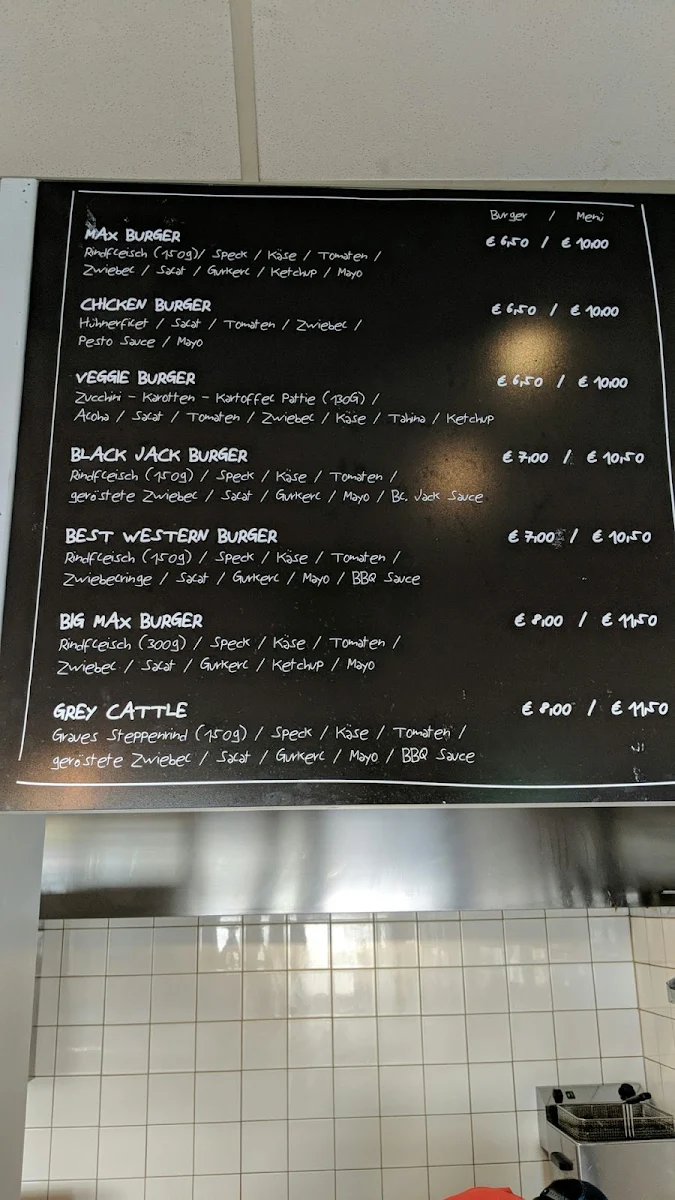 Burger / Menü
MAX BURGER € 6,50 / € 10,00
Rindfleisch (150g) / Speck / Käse / Tomaten /
Zwiebel / Salat / Gurkerl / Ketchup / Mayo
CHICKEN BURGER € 6,50 / € 10,00
Hühnerfilet / Salat / Tomaten / Zwiebel /
Pesto Sauce / Mayo
VEGGIE BURGER € 6,50 / € 10,00
Zucchini - Karotten - Kartoffel Pattie (130G) /
Aloha / Salat / Tomaten / Zwiebel / Käse / Tahina / Ketchup
BLACK JACK BURGER € 7,00 / € 10,50
Rindfleisch (150g) / Speck / Käse / Tomaten /
geröstete Zwiebel / Salat / Gurkerl / Mayo / BL. Jack Sauce
BEST WESTERN BURGER € 7,00 / € 10,50
Rindfleisch (150g) / Speck / Käse / Tomaten /
Zwiebelringe / Salat / Gurkerl / Mayo / BBQ Sauce
BIG MAX BURGER € 8,00 / € 11,50
Rindfleisch (300g) / Speck / Käse / Tomaten /
Zwiebel / Salat / Gurkerl / Ketchup / Mayo
GREY CATTLE € 8,00 / € 11,50
Graues Steppenrind (150g) / Speck / Käse / Tomaten /
geröstete Zwiebel / Salat / Gurkerl / Mayo / BBQ Sauce